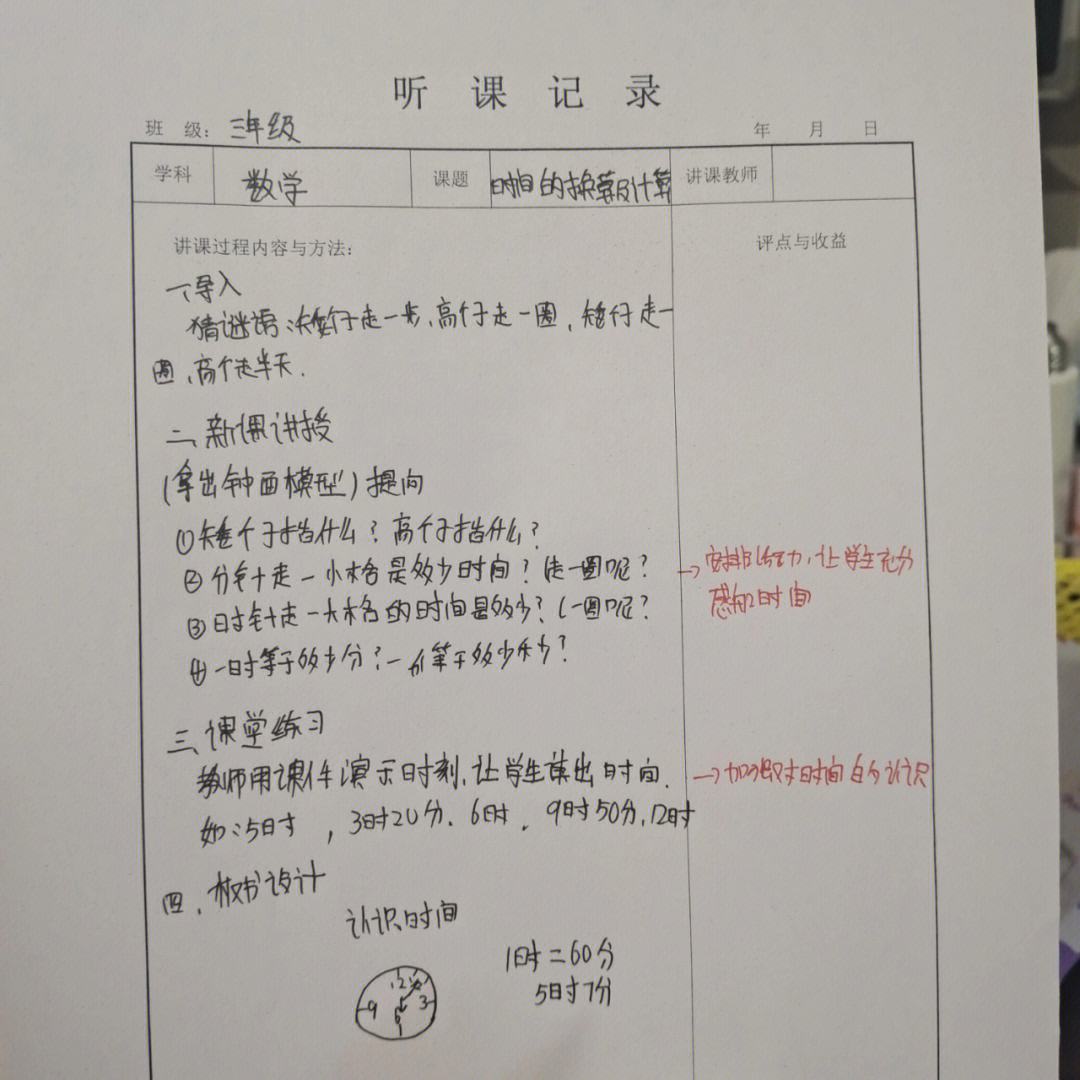 听课记录
班 级：三年级 年 月 日
学科 数学 课题 时间的换算及计算 讲课教师
讲课过程内容与方法： 评点与收益
一、导入
猜谜语：矮个子走一步、高个子走一圈，矮个子走一
圈、高个走半天．
二、新课讲授
（拿出钟面模型）提问
①矮个子指什么？高个子指什么？
②分针走一小格是多少时间？走一圈呢？
→安排活动，让学生充分
感知时间
③时针走一大格的时间是多少？（一圈呢？
④一时等于多少分？一分等于多少秒？
三、课堂练习
教师用课件演示时刻，让学生读出时间．
→加深对时间的认识
如：5时，3时20分．6时．9时50分，12时
四、板书设计
认识时间
1时＝60分
5时7分
12
9 3
6